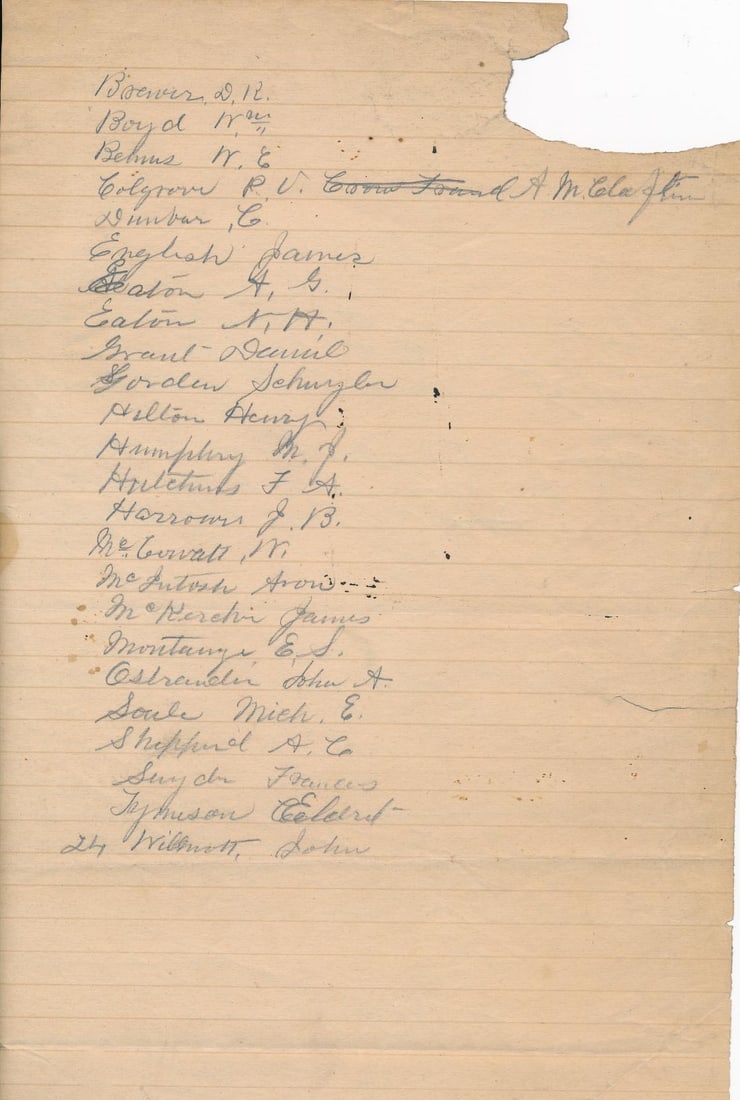 Brewer, D. R.
Boyd Wm
Behus W. E
Colgrove P. V. A McClaflin
Dunbar, C.
English James
Eaton A. G.
Eaton N. H.
Grant Daniel
Gorden Schuyler
Hilton Henry
Humphry M. J.
Hutchins F A.
Harrower J. B.
Mc. W.
McIntosh Aron
McKerchir James
Montanye E. S.
Ostrander John A.
Soule Mich. E.
Shippard A. C
Snyder Frances
Tymeson Eldret
24 Willmott, John